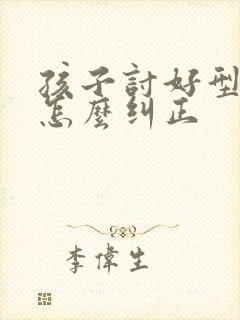 孩子討好型
怎麼纠正
李偉生